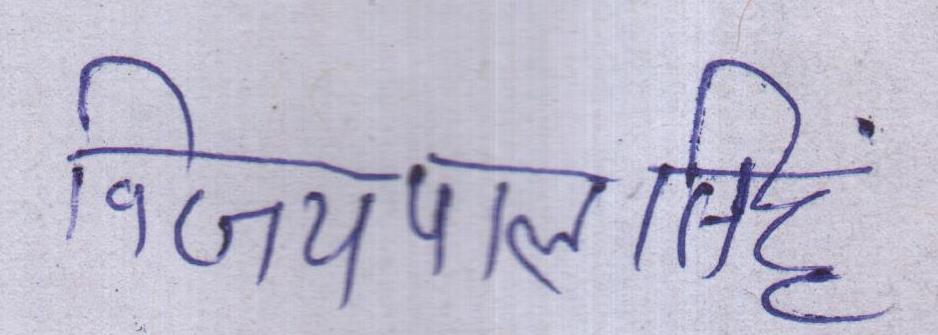 विजय पाल सिहं